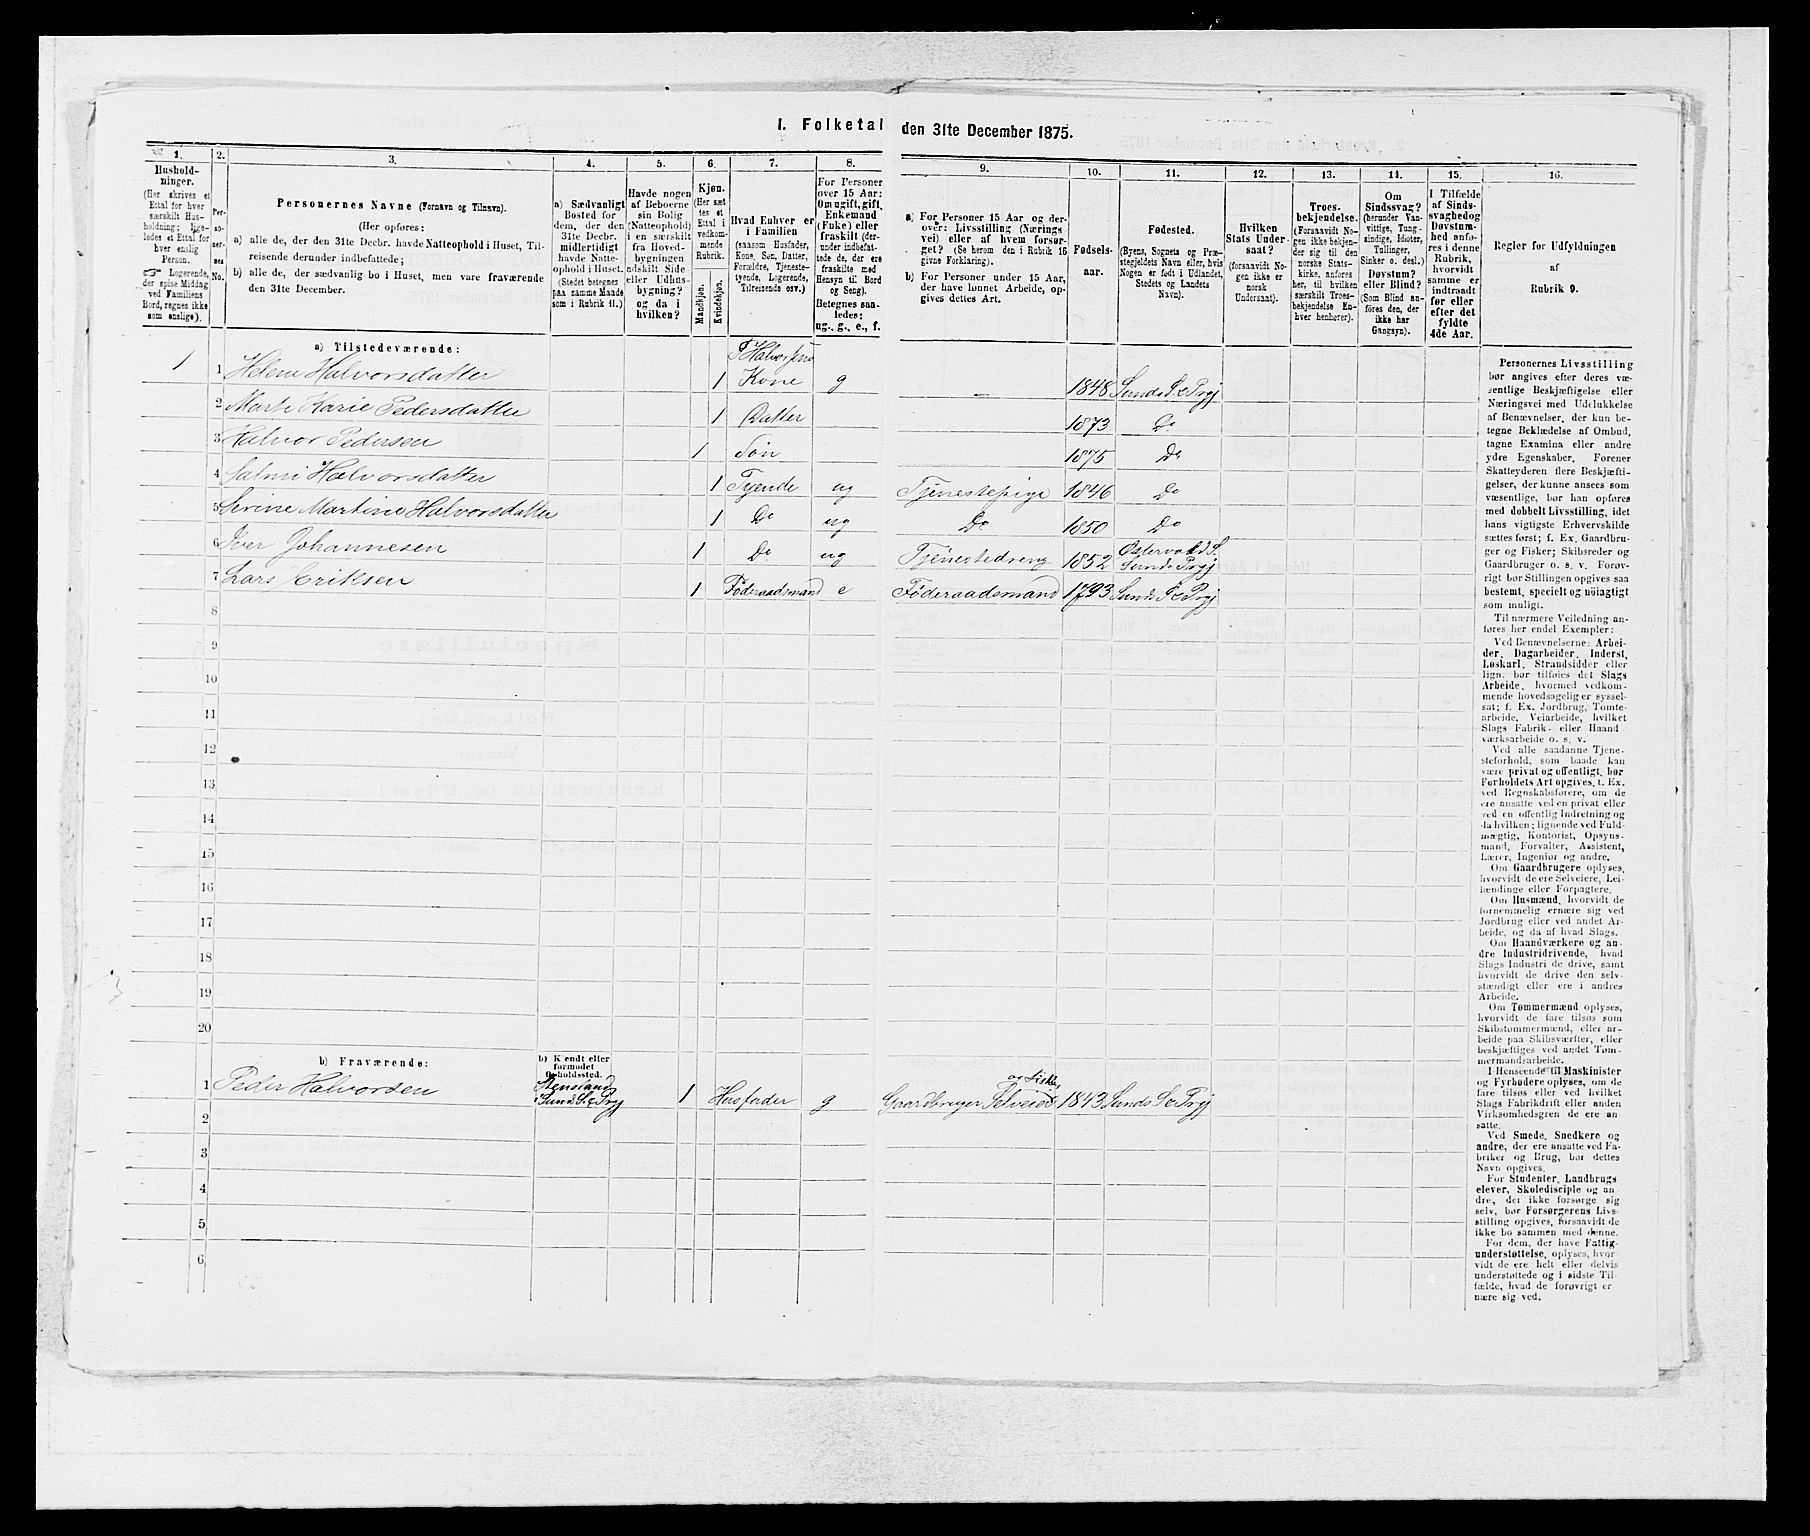 I. Folketal den 31te December 1875.
1. 2. 3. 4. 5. 6. 7. 8. 9. 10. 11. 12. 13. 14. 15. 16.
Hushold-
ninger.
(Her skrives et
Ettal for hver
særskilt Hus-
holdning; lige-
ledes et Ettal for
hver enslig
Person.
☞ Logerende,
der spise Middag
ved Familiens
Bord, regnes ikke
som enslige).
Per-
so-
ner-
nes
No.
Personernes Navne (Fornavn og Tilnavn).
(Her opføres:
a) alle de, der den 31te Decbr. havde Natteophold i Huset, Til-
reisende derunder indbefattede;
b) alle de, der sædvanlig bo i Huset, men vare fraværende
den 31te December.
a) Sædvanligt
Bosted for
dem, der den
31te Decbr.
midlertidigt
havde Natte-
ophold i Huset.
(Stedet betegnes
paa samme Maade
som i Rubrik 11.)
Havde nogen
af Beboerne
sin Bolig
(Natteophold)
i en særskilt
fra Hoved-
bygningen
adskilt Side-
eller Udhus-
bygning?
og da i
hvilken?
Kjøn.
(Her sæt-
tes et
Ettal i
vedkom-
mende
Rubrik.
Mandkjøn.
Kvindekjøn.
Hvad Enhver er
i Familien
(saasom Husfader,
Kone, Søn, Datter,
Forældre, Tjeneste-
tyende, Logerende,
Tilreisende osv.)
For Personer
over 15 Aar:
Om ugift, gift,
Enkemand
(Enke) eller
fraskilt (der-
under indbefat-
tede de, der ere
fraskilte med
Hensyn til Bord
og Seng).
Betegnes saa-
ledes:
ug., g., e., f.
a) For Personer 15 Aar og der-
over: Livsstilling (Nærings-
vei) eller af hvem forsør-
get? (Se herom den i Rubrik 16
givne Forklaring).
b) For Personer under 15 Aar,
der have lønnet Arbeide, op-
gives dettes Art.
Fødsels-
aar.
Fødested.
(Byens, Sognets og Præ-
stegjeldets Navn eller, hvis
Nogen er født i Udlandet,
Stedets og Landets
Navn).
Hvilken
Stats Under-
saat?
(forsaavidt No-
gen ikke er
norsk
Undersaat).
Troes-
bekjendelse.
(Forsaavidt No-
gen ikke bekjen-
der sig til den
norske Stats-
kirke, anføres
her, til hvilken
særskilt Troes-
bekjendelse En-
hver henhører).
Om
Sindssvag?
(herunder Van-
vittige, Tung-
sindige, Idioter,
Tullinger,
Sinker o. desl.)
Døvstum?
eller Blind?
(Som Blind an-
føres den, der
ikke har
Gangsyn).
I Tilfælde
af Sinds-
svaghed og
Døvstum-
hed anfø-
res i denne
Rubrik,
hvorvidt
samme er
indtraadt
før eller
efter det
fyldte
4de Aar.
Regler for Udfyldningen
af
Rubrik 9.
a) Tilstedeværende:
P Halvorsens
1 1 Helene Halvorsdatter 1 Kone g — 1848 Sunds S & Prgj
2 Marte Karie Pedersdatter 1 Datter 1873 Do
3 Halvor Pedersen 1 Søn 1875 Do
4 Halvorsdatter 1 Tyende ug Tjenestepige 1846 Do
5 Serine Martine Halvorsdatter 1 Do ug Do 1850 Do
6 Iver Johannesen 1 Do ug Tjenestedreng 1852 S. Sunds Prgj
7 Lars Eriksen 1 Føderaadsmand e Føderaadsmand 1793 Sunds S & Prgj
8
9
10
11
12
13
14
15
16
17
18
19
20
b) Fraværende:
b) Kjendt eller
formodet
Opholdssted.
1 Peder Halvorsen Sund S. & Prgj 1 Husfader g Gaardbruger Selveier og Fisker 1843 Sunds S & Prgj
2
3
4
5
6
Personernes Livsstilling
bør angives efter deres væ-
sentlige Beskjæftigelse eller
Næringsvei med Udelukkelse
af Benævnelser, der kun be-
tegne Beklædelse af Ombud,
tagne Examina eller andre
ydre Egenskaber. Forener
Skatteyderen flere Beskjæfti-
gelser, der kunne ansees som
væsentlige, bør han opføres
med dobbelt Livsstilling, idet
hans vigtigste Erhvervskilde
sættes først; f. Ex. Gaardbru-
ger og Fisker; Skibsreder og
Gaardbruger o. s. v. Forøv-
rigt bør Stillingen opgives saa
bestemt, specielt og nøiagtigt
som muligt.
Til nærmere Veiledning an-
føres her endel Exempler:
Ved Benævnelserne: Arbei-
der, Dagarbeider, Inderst,
Løskarl, Strandsidder eller
lign. bør tilføies det Slags
Arbeide, hvormed vedkom-
mende hovedsagelig er syssel-
sat; f. Ex. Jordbrug, Tomte-
arbeide, Veiarbeide, hvilket
Slags Fabrik- eller Haand-
værksarbeide o. s. v.
Ved alle saadanne Tjene-
steforhold, som baade kan
være privat og offentligt, bør
Forholdets Art opgives, t. Ex.
ved Regnskabsførere, om de
ere ansatte ved en privat eller
ved en offentlig Indretning og
da hvilken; lignende ved Fuld-
mægtig, Kontorist, Opsyns-
mand, Forvalter, Assistent,
Lærer, Ingeniør og andre.
Om Gaardbrugere oplyses,
hvorvidt de ere Selveiere, Lei-
lændinge eller Forpagtere.
Om Husmænd, hvorvidt de
fornemmelig ernære sig ved
Jordbrug eller ved andet Ar-
beide, og da af hvad Slags.
Om Haandværkere og an-
dre Industridrivende, hvad
Slags Industri de drive, samt
hvorvidt de drive den selv-
stændigt eller ere i andres
Arbeide.
Om Tømmermænd oplyses,
hvorvidt de fare tilsøs som
Skibstømmermænd, eller ar-
beide paa Skibsværfter, eller
beskjæftiges ved andet Tøm-
mermandsarbeide.
I Henseende til Maskinister
og Fyrbødere oplyses, om de
fare tilsøs eller ved hvilket
Slags Fabrikdrift eller anden
Virksomhedsgren de ere an-
satte.
Ved Smede, Snedkere og
andre, der ere ansatte ved Fa-
briker og Brug, bør dettes
Navn opgives.
For Studenter, Landbrugs-
elever, Skoledisciple og an-
dre, der ikke forsørge sig
selv, bør Forsørgerens Livs-
stilling opgives, forsaavidt de
ikke bo sammen med denne.
For dem, der have Fattig-
understøttelse, oplyses, hvor-
vidt de ere helt eller delvis
understøttede og i sidste Til-
fælde, hvad de forøvrigt er-
nære sig ved.